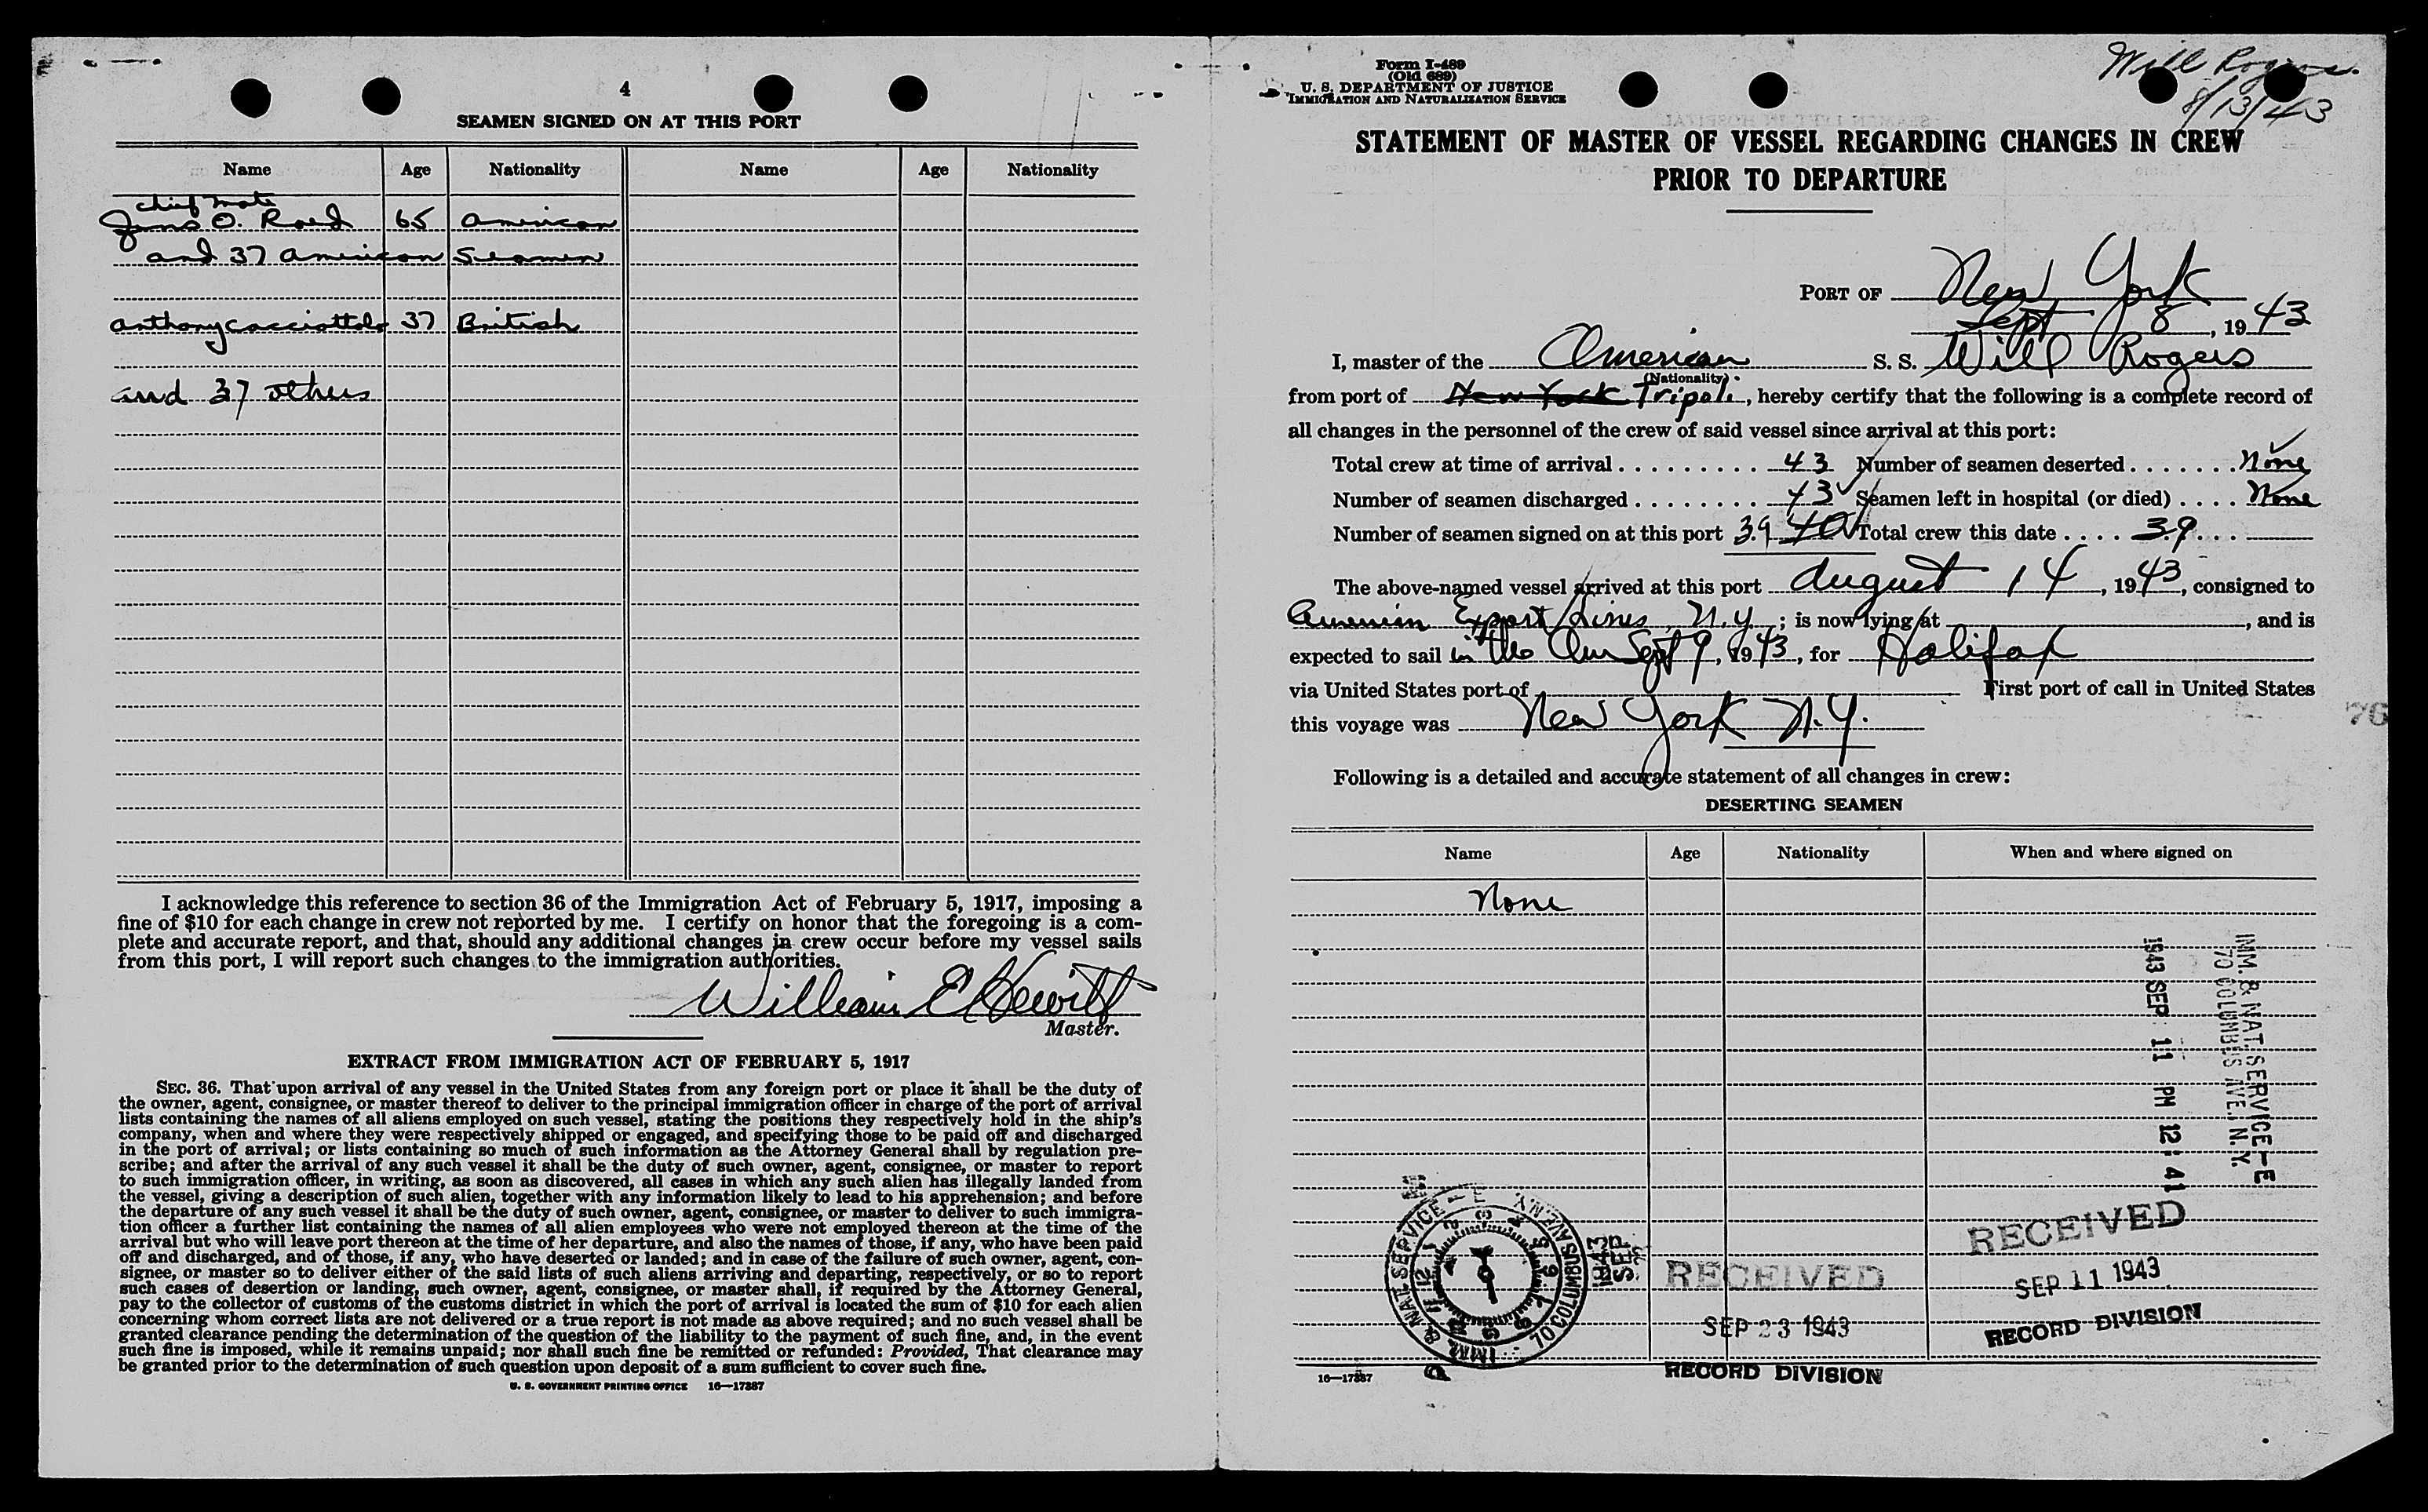 4
SEAMEN SIGNED ON AT THIS PORT
Name Age Nationality Name Age Nationality
chief mate
Jens O. Roed 65 American
and 37 American Seamen
Anthony Cacciottolo 37 British
and 37 others
I acknowledge this reference to section 36 of the Immigration Act of February 5, 1917, imposing a
fine of $10 for each change in crew not reported by me. I certify on honor that the foregoing is a com-
plete and accurate report, and that, should any additional changes in crew occur before my vessel sails
from this port, I will report such changes to the immigration authorities.
William E Hewitt
Master.
EXTRACT FROM IMMIGRATION ACT OF FEBRUARY 5, 1917
SEC. 36. That upon arrival of any vessel in the United States from any foreign port or place it shall be the duty of
the owner, agent, consignee, or master thereof to deliver to the principal immigration officer in charge of the port of arrival
lists containing the names of all aliens employed on such vessel, stating the positions they respectively hold in the ship's
company, when and where they were respectively shipped or engaged, and specifying those to be paid off and discharged
in the port of arrival; or lists containing so much of such information as the Attorney General shall by regulation pre-
scribe; and after the arrival of any such vessel it shall be the duty of such owner, agent, consignee, or master to report
to such immigration officer, in writing, as soon as discovered, all cases in which any such alien has illegally landed from
the vessel, giving a description of such alien, together with any information likely to lead to his apprehension; and before
the departure of any such vessel it shall be the duty of such owner, agent, consignee, or master to deliver to such immigra-
tion officer a further list containing the names of all alien employees who were not employed thereon at the time of the
arrival but who will leave port thereon at the time of her departure, and also the names of those, if any, who have been paid
off and discharged, and of those, if any, who have deserted or landed; and in case of the failure of such owner, agent, con-
signee, or master so to deliver either of the said lists of such aliens arriving and departing, respectively, or so to report
such cases of desertion or landing, such owner, agent, consignee, or master shall, if required by the Attorney General,
pay to the collector of customs of the customs district in which the port of arrival is located the sum of $10 for each alien
concerning whom correct lists are not delivered or a true report is not made as above required; and no such vessel shall be
granted clearance pending the determination of the question of the liability to the payment of such fine, and, in the event
such fine is imposed, while it remains unpaid; nor shall such fine be remitted or refunded: Provided, That clearance may
be granted prior to the determination of such question upon deposit of a sum sufficient to cover such fine.
U. S. GOVERNMENT PRINTING OFFICE 16—17387
Form I-489
(Old 689)
U. S. DEPARTMENT OF JUSTICE
IMMIGRATION AND NATURALIZATION SERVICE
Will Rogers.
8/13/43
STATEMENT OF MASTER OF VESSEL REGARDING CHANGES IN CREW
PRIOR TO DEPARTURE
PORT OF New York
Sept 8, 1943
I, master of the American S. S. Will Rogers
(Nationality)
from port of New York Tripoli, hereby certify that the following is a complete record of
all changes in the personnel of the crew of said vessel since arrival at this port:
Total crew at time of arrival . . . . . . . . . . 43 Number of seamen deserted . . . . . . . None
Number of seamen discharged . . . . . . . . 43 Seamen left in hospital (or died) . . . . None
Number of seamen signed on at this port 39 40 Total crew this date . . . . 39 . . .
The above-named vessel arrived at this port August 14, 1943, consigned to
American Export Lines, N.Y.; is now lying at , and is
expected to sail in the am Sept 9, 1943, for Halifax
via United States port of First port of call in United States
this voyage was New York N.Y.
76
Following is a detailed and accurate statement of all changes in crew:
DESERTING SEAMEN
Name Age Nationality When and where signed on
None
IMM. & NAT. SERVICE-E
70 COLUMBUS AVE. N.Y.
1943 SEP 11 PM 12:41
IMM. & NAT. SERVICE - E
70 COLUMBUS AVE. N.Y.
1943
SEP
RECEIVED
SEP 23 1943
RECORD DIVISION
RECEIVED
SEP 11 1943
RECORD DIVISION
16—17387